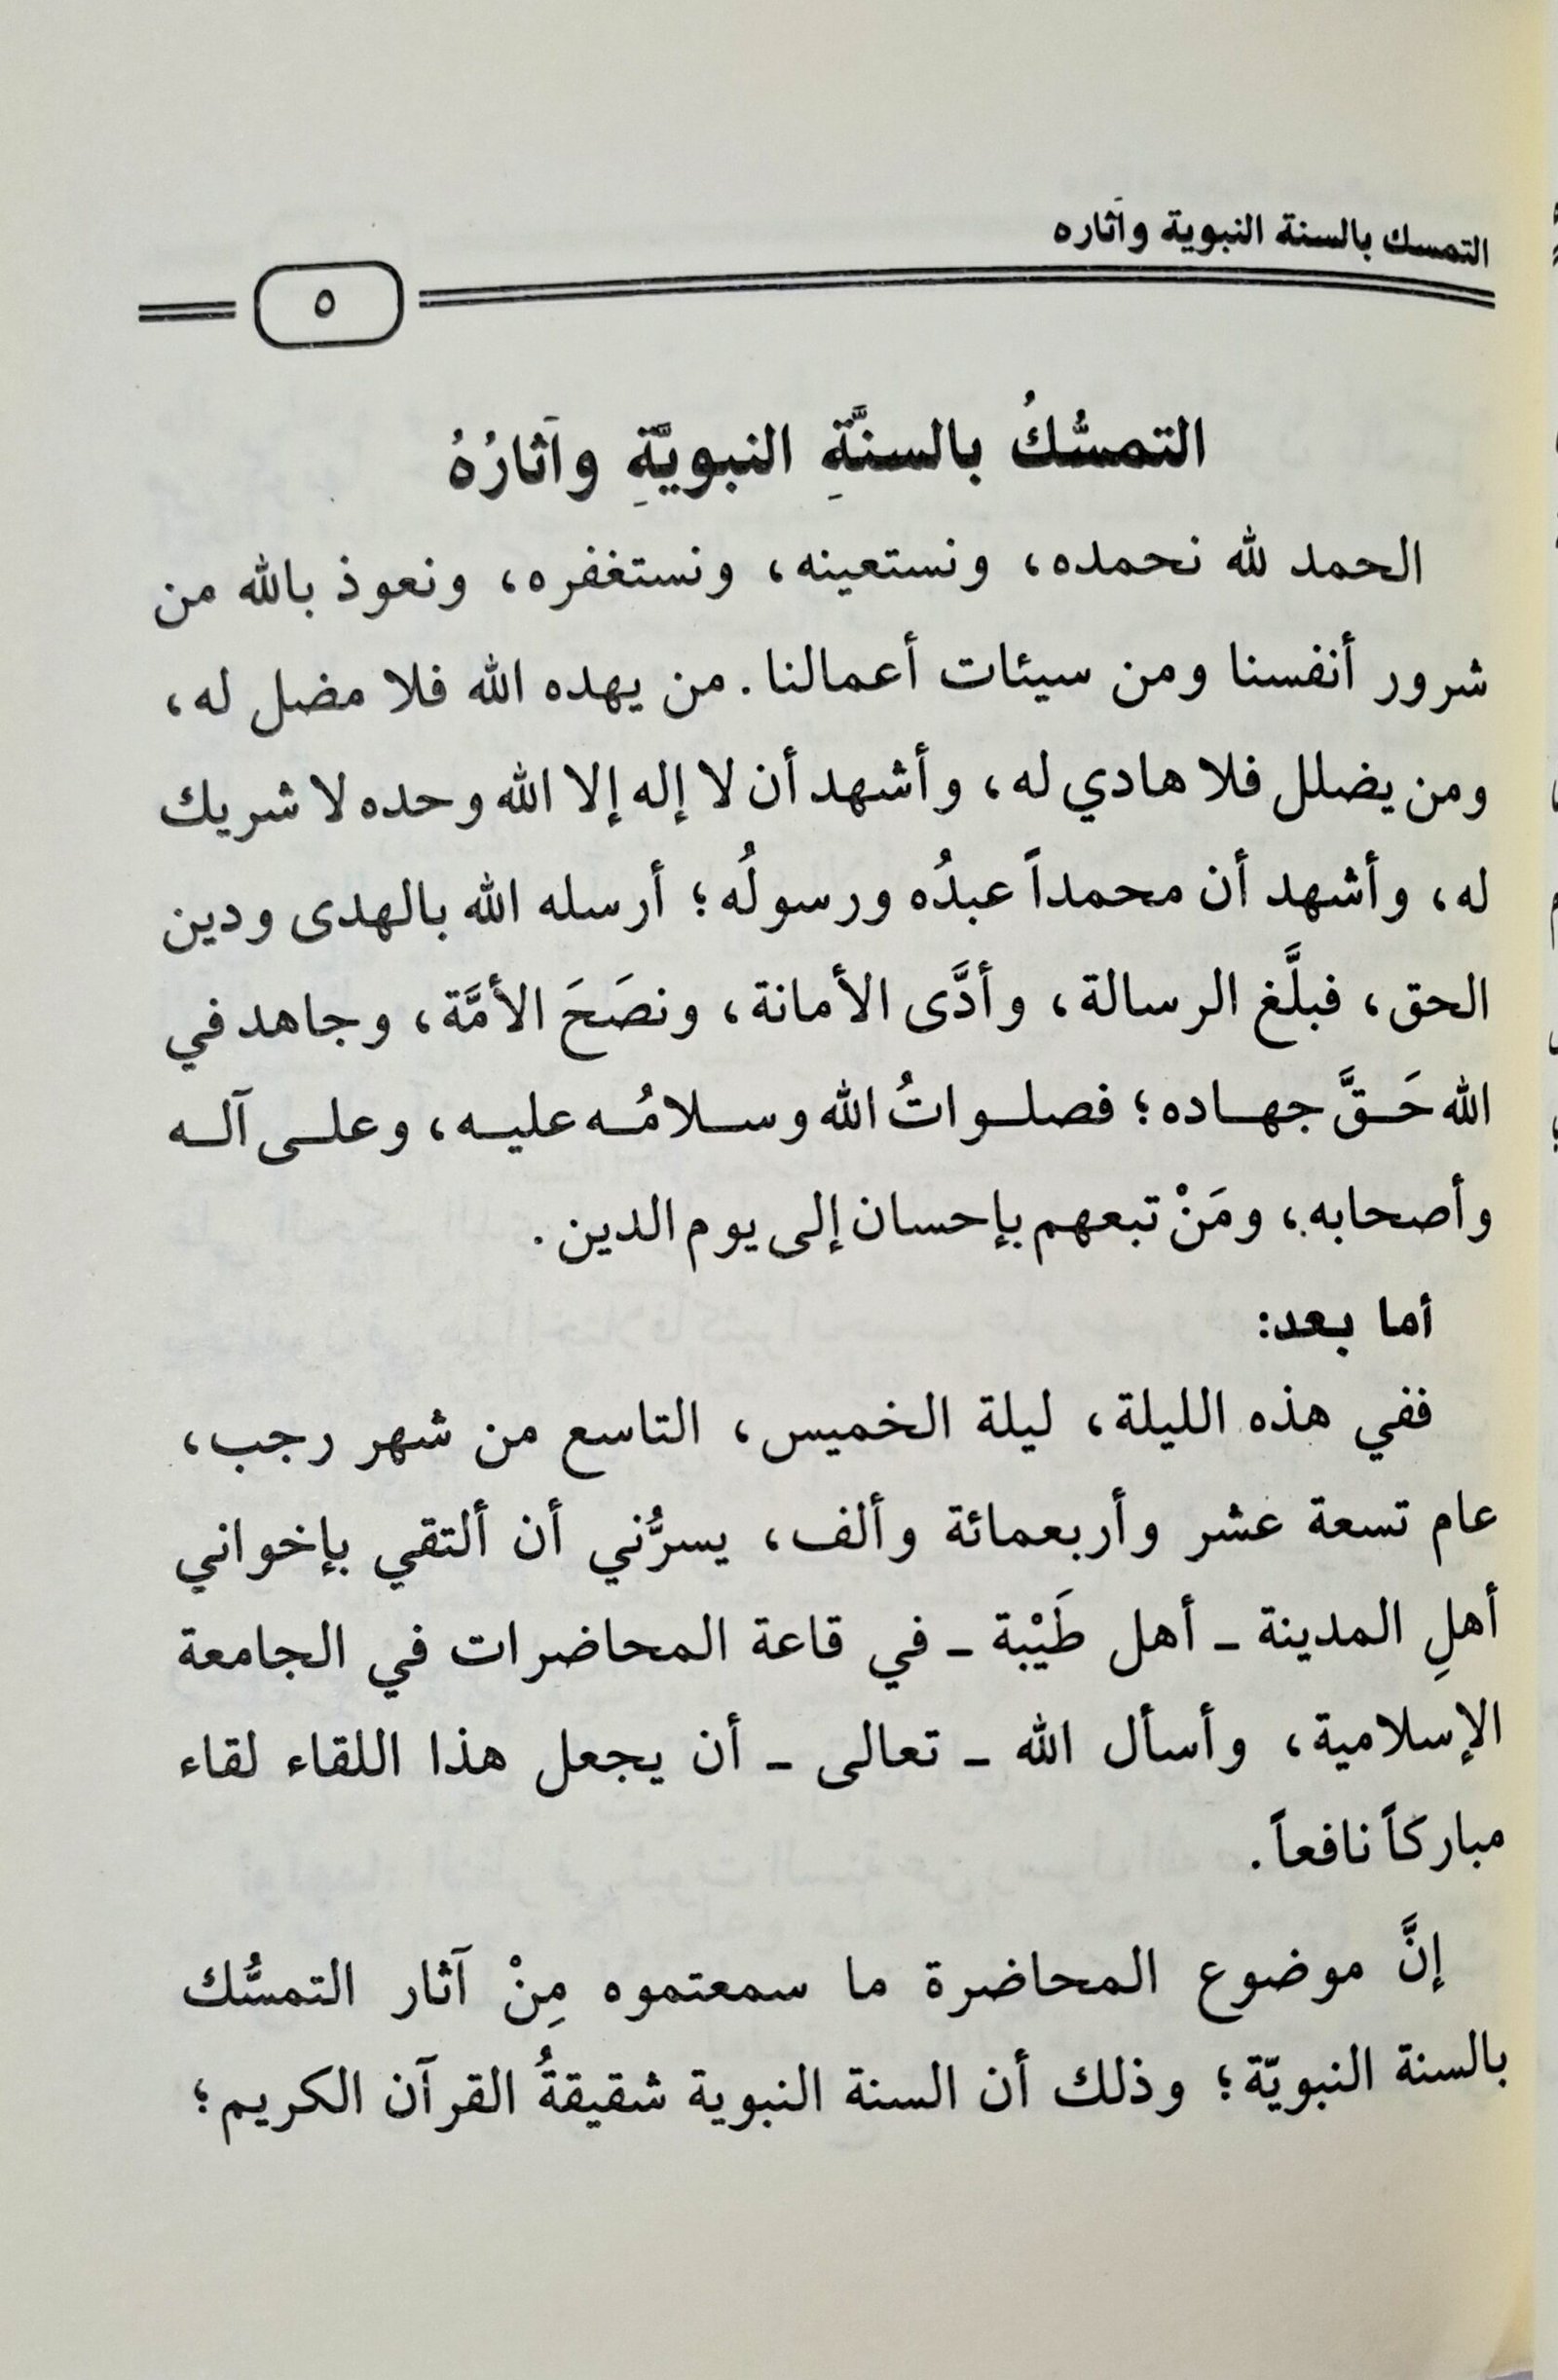 التمسك بالسنة النبوية وآثاره
٥
التمسُّكُ بالسنَّةِ النبويَّةِ وآثارُهُ
الحمد لله نحمده، ونستعينه، ونستغفره، ونعوذ بالله من
شرور أنفسنا ومن سيئات أعمالنا. من يهده الله فلا مضل له،
ومن يضلل فلا هادي له، وأشهد أن لا إله إلا الله وحده لا شريك
له، وأشهد أن محمداً عبدُه ورسولُه؛ أرسله الله بالهدى ودين
الحق، فبلَّغ الرسالة، وأدَّى الأمانة، ونصَحَ الأمَّة، وجاهد في
الله حَقَّ جهاده؛ فصلواتُ الله وسلامُه عليه، وعلى آله
وأصحابه، ومَنْ تبعهم بإحسان إلى يوم الدين.
أما بعد:
ففي هذه الليلة، ليلة الخميس، التاسع من شهر رجب،
عام تسعة عشر وأربعمائة وألف، يسرُّني أن ألتقي بإخواني
أهلِ المدينة ـ أهل طَيْبة ـ في قاعة المحاضرات في الجامعة
الإسلامية، وأسأل الله ـ تعالى ـ أن يجعل هذا اللقاء لقاء
مباركاً نافعاً.
إنَّ موضوع المحاضرة ما سمعتموه مِنْ آثار التمسُّك
بالسنة النبويّة؛ وذلك أن السنة النبوية شقيقةُ القرآن الكريم؛